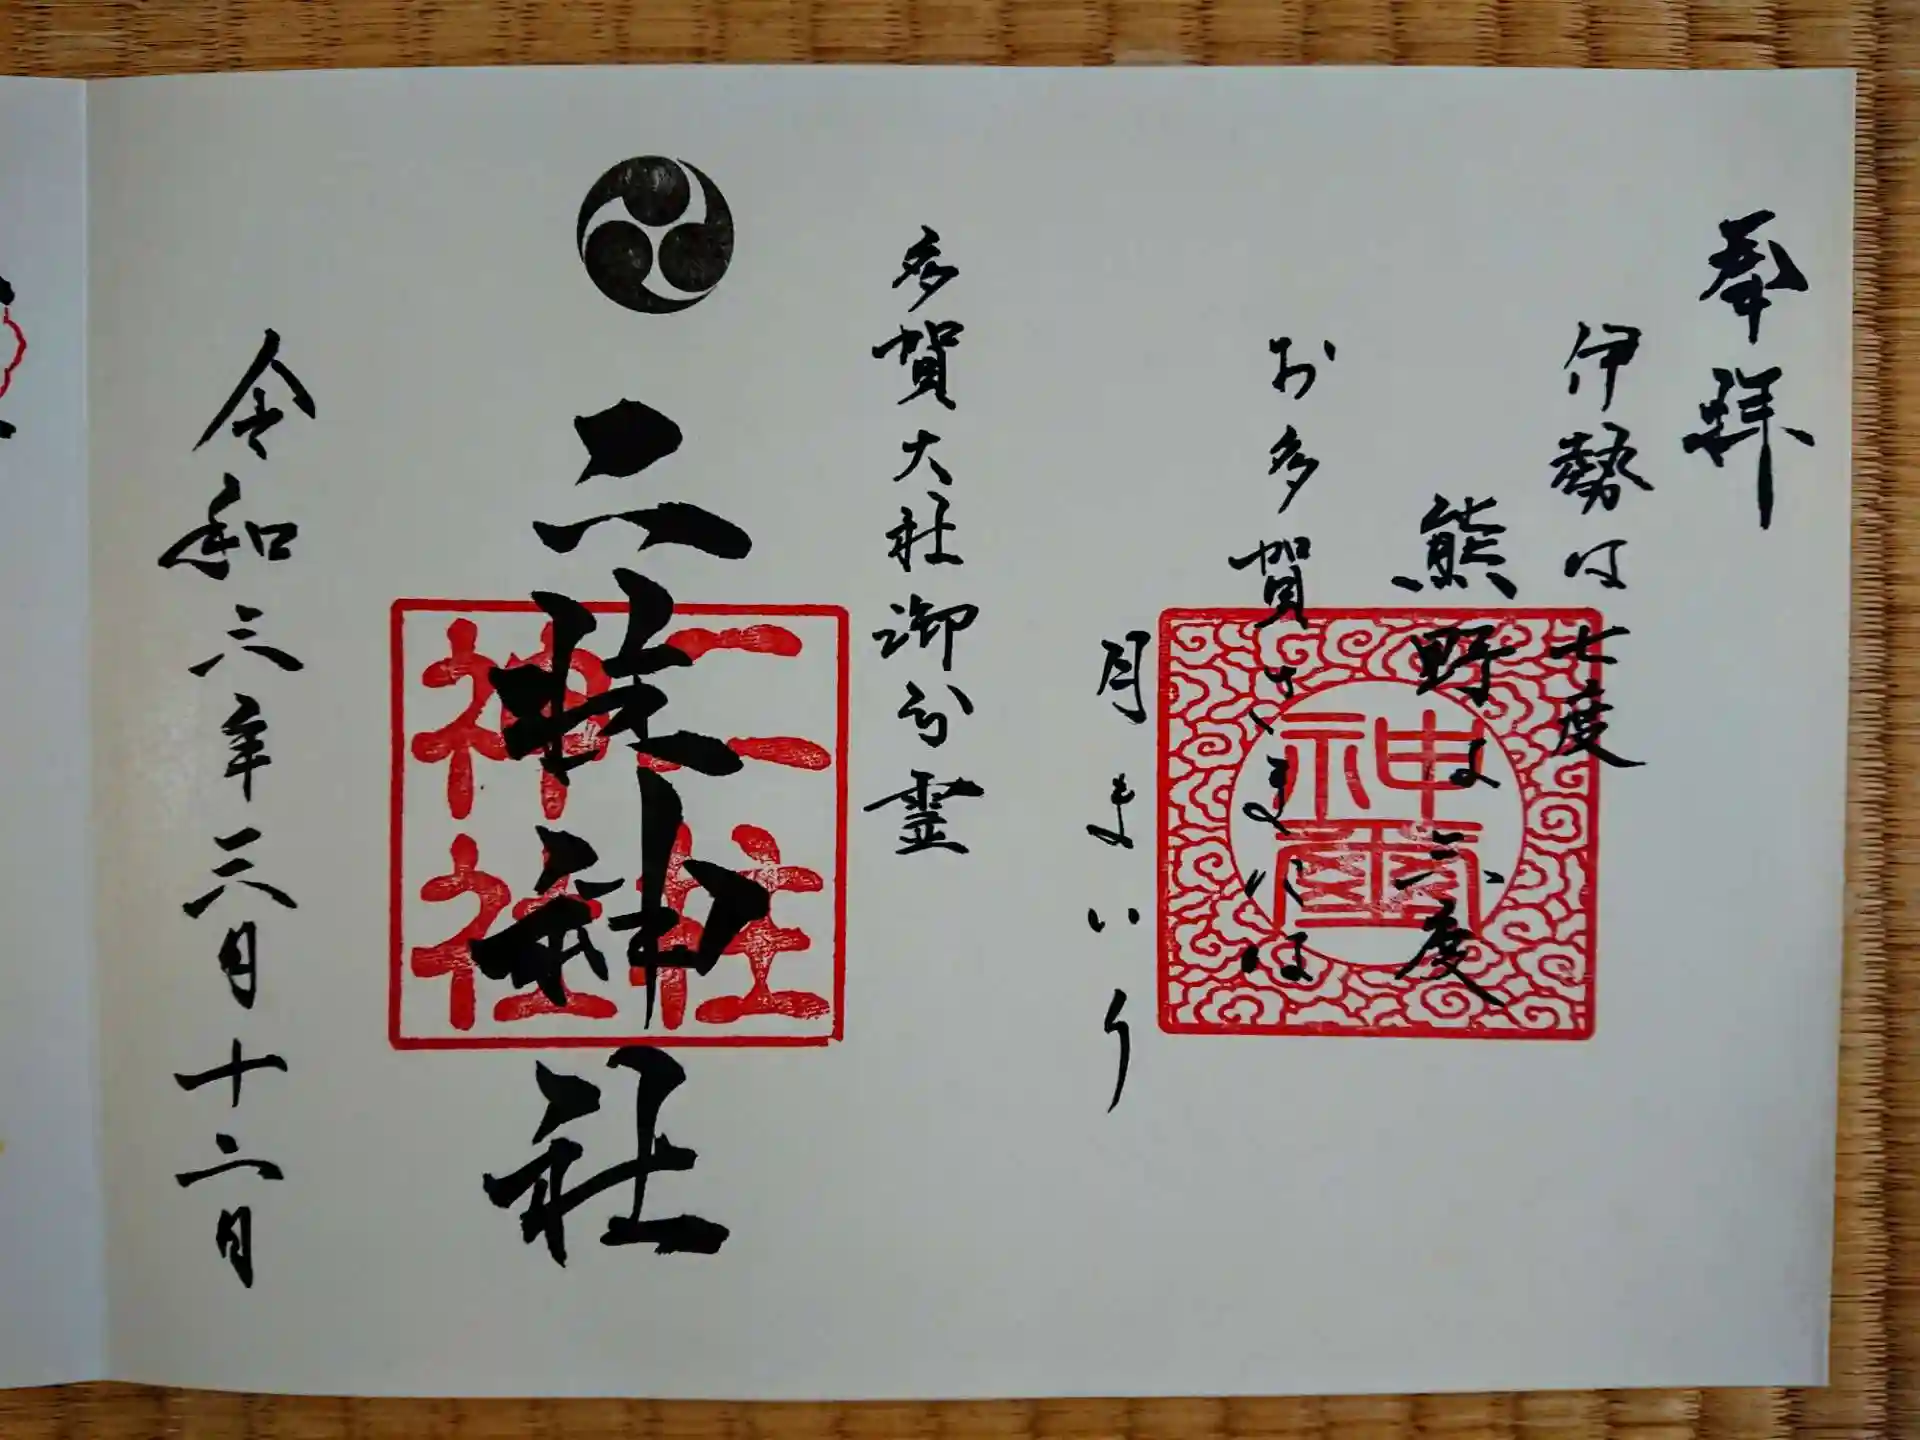 奉拝
伊勢は七度
熊野は三度
お多賀さまには
月まいり
多賀大社御分霊
二柱神社
二柱
神社
令和三年三月十二日